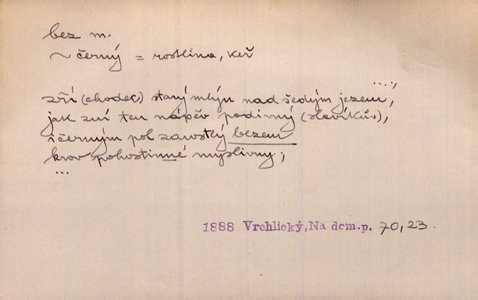 bez m.
~ černý = rostlina, keř
...,
zří (chodec) starý mlýn nad šedým jezem,
jak zní ten nápěv podivný (slavíkův),
i černým pol zarostlý bezem
krov pohostinné myslivny;
...
1888 Vrchlický, Na dom.p. 70,23.